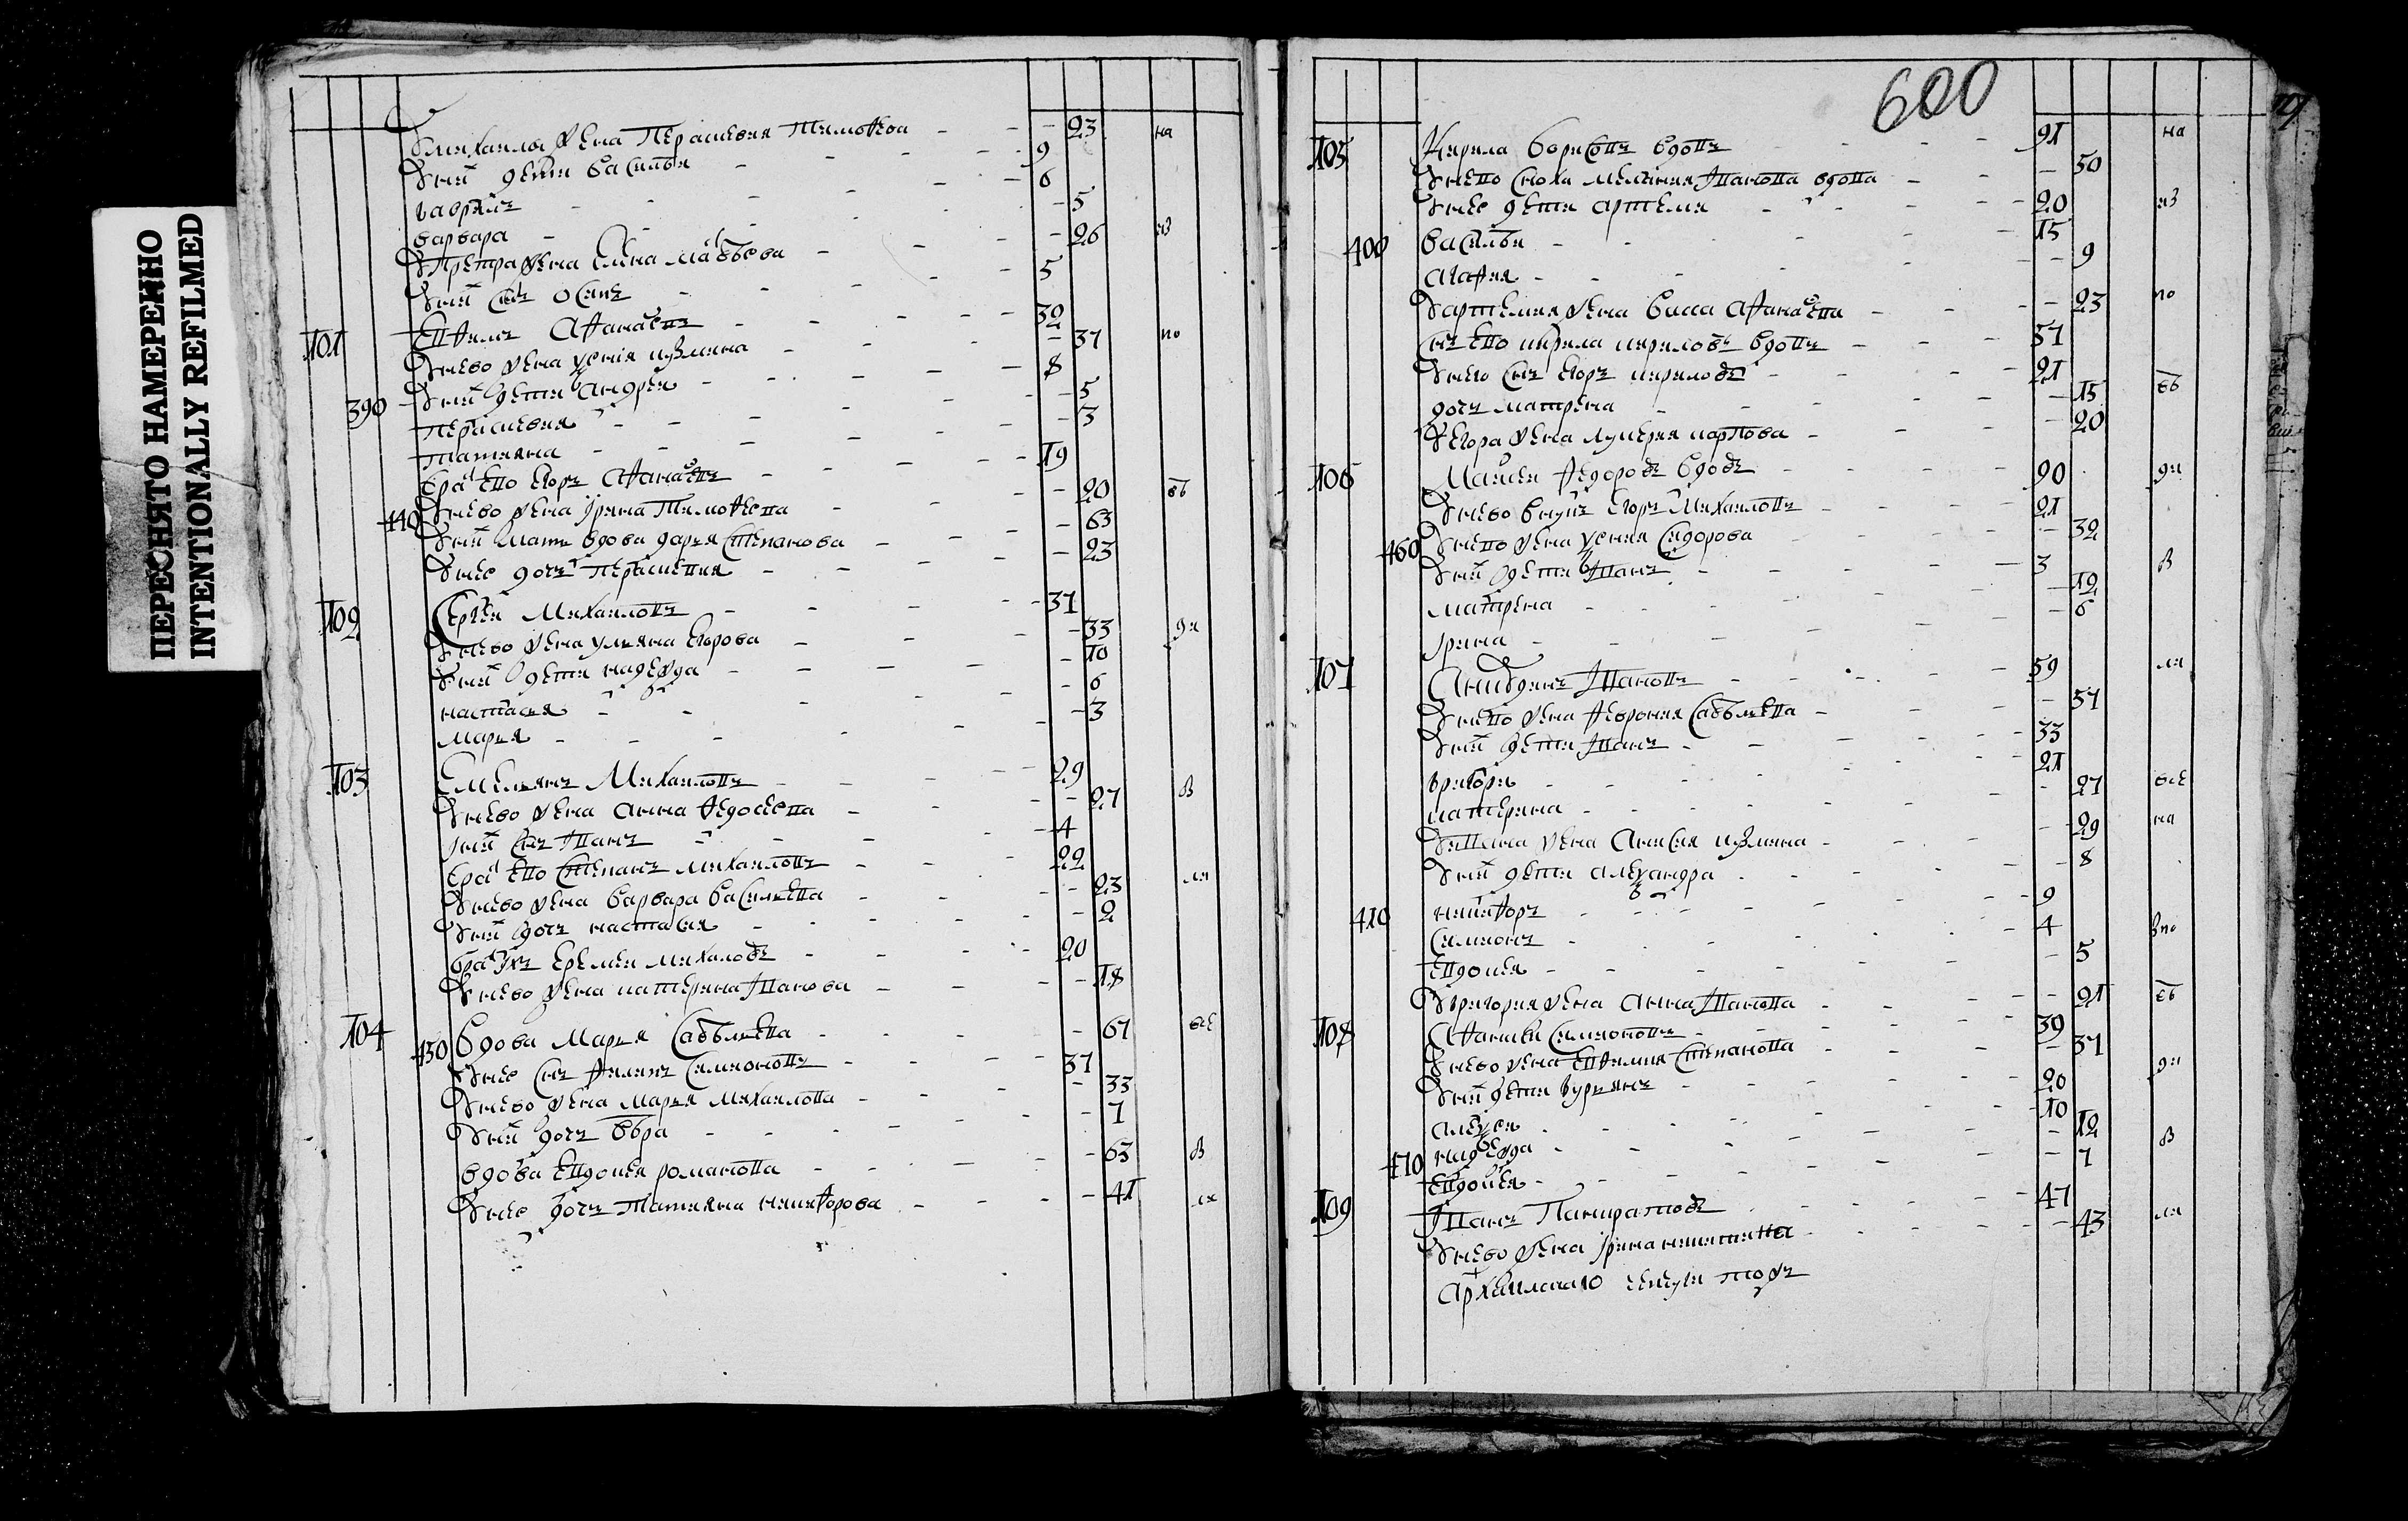 ПЕРЕСНЯТО НАМЕРЕННО
INTENTIONALLY REFILMED
600
Умихаила жена Парасковия Тимофеева - 23 на
Уних дети Василеи - 9
Гаврила - 6
Варвара - 5
Упетра жена Анна - 26 из
Уних снъ Осипъ - 5
101 Ефимъ Афанасевъ - 32
Унево жена Ксения Кузмина - 37 по
390 Уних дети Андреи - 8
Парасковия - 5
Татияна - 3
братъ ево Егоръ Афанасевъ - 19
440 Унево жена Ирина Тимофеева - 20 въ
Уних мать вдова Дарья Степанова - 63
Унее дочь Парасковия - 23
102 Сергеи Михаиловъ - 37
Унево жена Ульяна Егорова - 33 ди
Уних дети Надежда - 10
Настасья - 6
Марья - 3
103 Емельянъ Михаиловъ - 29
Унево жена Анна Федосеева - 27 в
Уних снъ Иванъ - 4
братъ ево Степанъ Михаиловъ - 22
Унево жена Варвара Василева - 23 ли
Уних дочь Настасия - 2
братъ ихъ Еремеи Михаиловъ - 20
Унево жена Катерина Иванова - 18
104 450 Вдова Марья Савельева - 67 все
Унее снъ Филипъ Симионовъ - 37
Унево жена Марья Михаилова - 33
Уних дочь Вера - 7
Вдова Евдокея Романова - 63 в
Унее дочь Татияна Никифорова - 41 ли
105 Кирила Борисовъ вдовъ - 91 на
Унево сноха Мелания Иванова вдова - 50
Унее дети Артемеи - 20 из
400 Василеи - 15
Агафия - 9
Уартемия жена Васса Афанасева - 23 по
Снъ ево Кирила Кириловъ вдовъ - 57
Унего снъ Егоръ Кириловъ - 21
дочь Матрена - 15 въ
Уегора жена Лукерия Карпова - 20
106 Моисеи Федоровъ вдовъ - 90 ди
Унево внукъ Егоръ Михаиловъ - 21
460 Унево жена Ксения Сидорова - 32
Уних дети Иванъ - 3 в
Матрена - 12
Ирина - 6
107 Ивановъ - 59 ли
Унево жена Феврония Савельева - 57
Уних дети Иванъ - 33
Григореи - 21
Катерина - 27 все
Уивана жена Анисия Кузмина - 29 на
Уних дети Александра - 8
410 Никифоръ - 9
Симионъ - 4
Евдокея - 5
Угригория жена Анна Иванова - 21 въ
108 Афанасеи Симионовъ - 39
Унево жена Евфимия Степанова - 37
Уних дети Гурьянъ - 20 ди
Алексеи - 10
470 Надежда - 12 в
Евдокея - 7
109 Иванъ Панкратовъ - 47
Унево жена Ирина Никитина - 43 ли